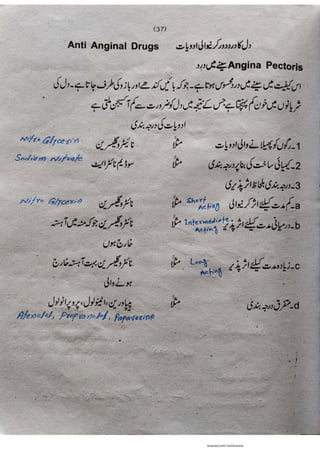 (37)
Anti Anginal Drugs دل کا درد دور کرنیوالی ادویات
Angina Pectoris سینے میں درد
اس کیفیت میں سینے میں درد محسوس ہوتا ہے۔ جو کہ بائیں کندھے اور بازو کی طرف جاتا ہے۔ دل کی
شریانوں میں خون کم پہنچتا ہے جس کے نتیجہ میں دل کو ضرورت سے کم آکسیجن ملتی ہے
ادویات کی درجہ بندی
1۔ رگوں کو پھیلانے والی ادویات مثلاً نائیٹروگلیسرین Nitro Glycerin
2۔ کیمیائی ساخت کی بناء پر درجہ بندی مثلاً سوڈیم نائٹرائیٹ Sodium Nitrate
3۔ درجہ بندی بلحاظ اثر پذیری
a۔ کم مدت کیلئے اثر کرنیوالی Short Acting مثلاً نائٹروگلیسرین Nitro Glycerin
b۔ درمیانی مدت کیلئے اثر پذیر Intermediate Acting مثلاً نائٹروگلیسرین جو کہ منہ میں آہستہ
خارج ہوں
c۔ زیادہ مدت کیلئے اثر پذیر Long Acting مثلاً نائٹروگلیسرین بہت آہستہ خارج
ہونے والی
d۔ متفرق درجہ بندی مثلاً پیپاورین، اٹینولول، پروپرانولول
Atenolol, Propranolol, Papaverine
Scanned with CamScanner